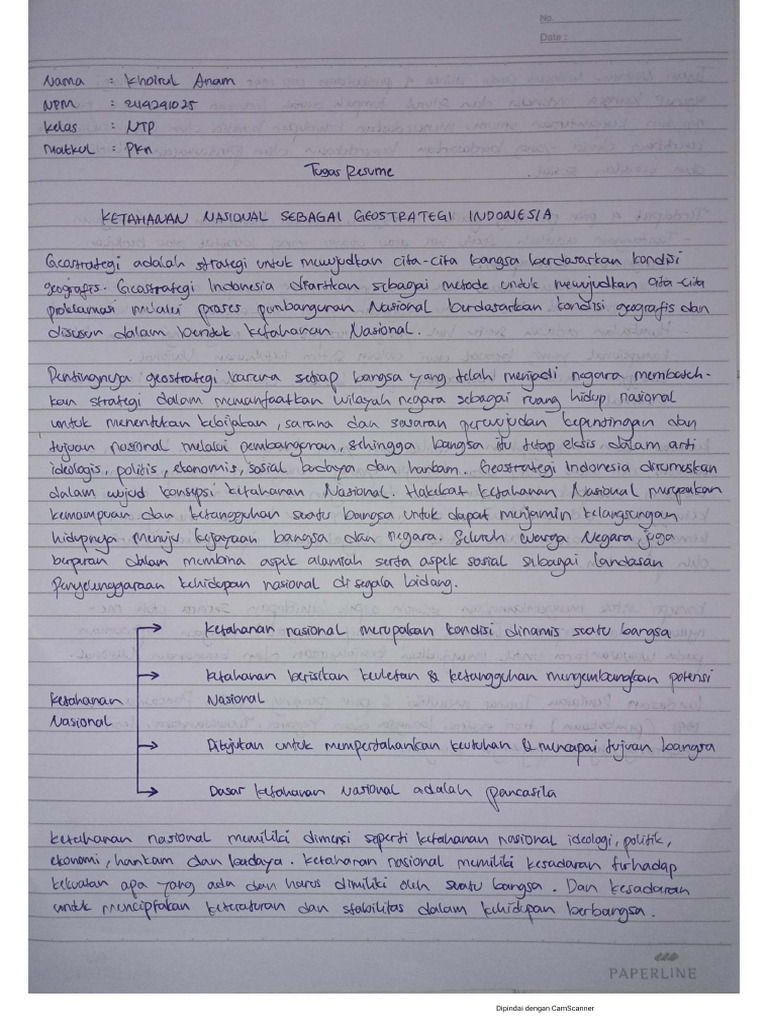 No.
Date :
Nama : Khoirul Anam
NPM : 2119291025
Kelas : NTP
Matkul : PKn
Tugas Resume
KETAHANAN NASIONAL SEBAGAI GEOSTRATEGI INDONESIA
Geostrategi adalah strategi untuk mewujudkan cita-cita bangsa berdasarkan kondisi
geografis. Geostrategi Indonesia diartikan sebagai metode untuk mewujudkan cita-cita
proklamasi melalui proses pembangunan Nasional berdasarkan kondisi geografis dan
disusun dalam bentuk ketahanan Nasional.
Pentingnya geostrategi karena setiap bangsa yang telah menjadi negara membutuh-
kan strategi dalam memanfaatkan wilayah negara sebagai ruang hidup nasional
untuk menentukan kebijakan, sarana dan sasaran perwujudan kepentingan dan
tujuan nasional melalui pembangunan, sehingga bangsa itu tetap eksis dalam arti
ideologis, politis, ekonomis, sosial budaya dan hankam. Geostrategi Indonesia dirumuskan
dalam wujud konsepsi ketahanan Nasional. Hakekat ketahanan Nasional merupakan
kemampuan dan ketangguhan suatu bangsa untuk dapat menjamin kelangsungan
hidupnya menuju kejayaan bangsa dan negara. Seluruh Warga Negara juga
berperan dalam membina aspek alamiah serta aspek sosial sebagai landasan
penyelenggaraan kehidupan nasional di segala bidang.
Ketahanan Nasional
Ketahanan nasional merupakan kondisi dinamis suatu bangsa
ketahanan berisikan keuletan & ketangguhan mengembangkan potensi
Nasional
Ditujukan untuk mempertahankan keutuhan & mencapai tujuan bangsa
Dasar ketahanan Nasional adalah pancasila
Ketahanan nasional memiliki dimensi seperti ketahanan nasional ideologi, politik,
ekonomi, hankam dan budaya. Ketahanan nasional memiliki kesadaran terhadap
kekuatan apa yang ada dan harus dimiliki oleh suatu bangsa. Dan kesadaran
untuk menciptakan keteraturan dan stabilitas dalam kehidupan berbangsa.
PAPERLINE
Dipindai dengan CamScanner